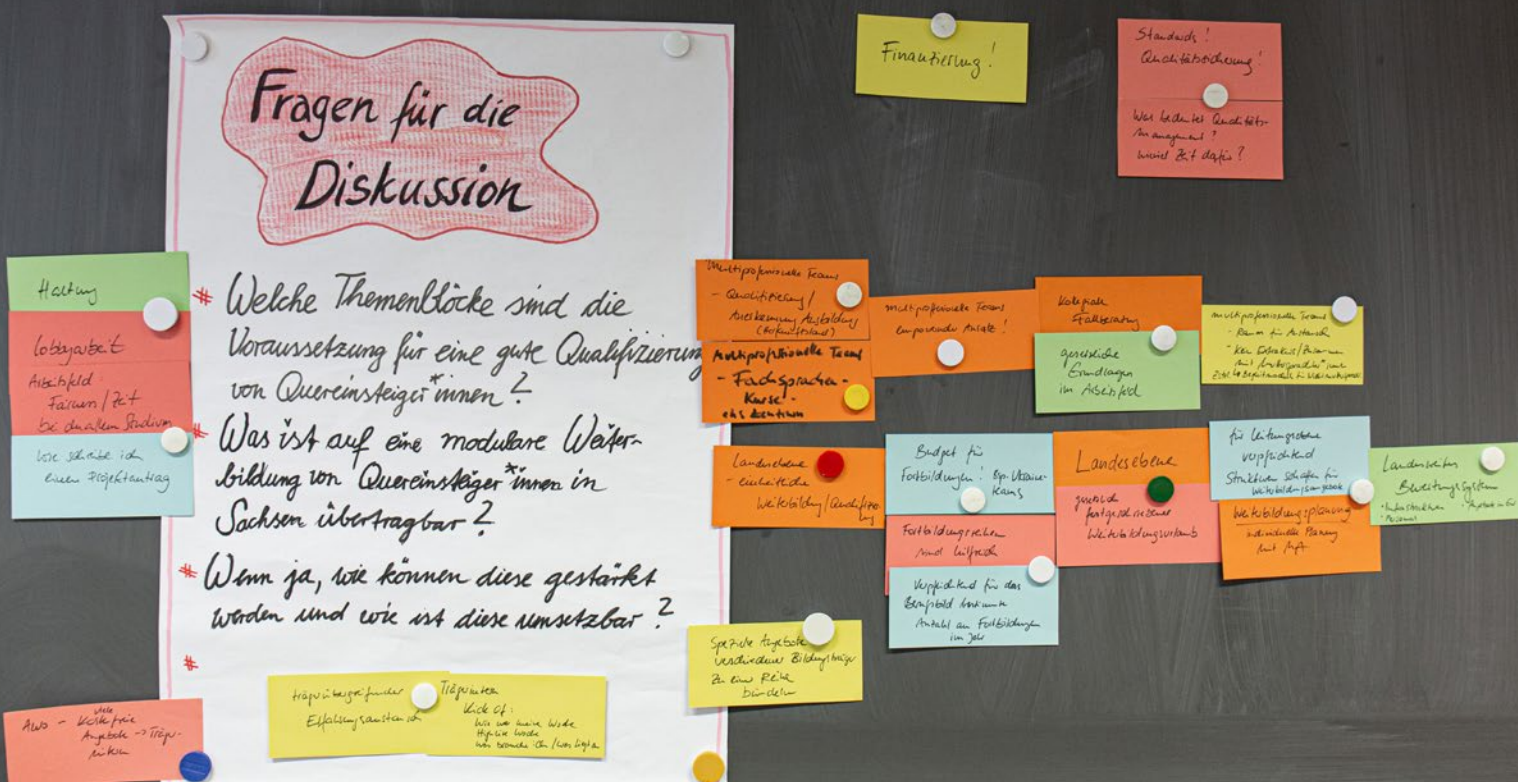 Fragen für die
Diskussion
# Welche Themenblöcke sind die
Voraussetzung für eine gute Qualifizierung
von Quereinsteiger*innen?
# Was ist auf eine modulare Weiter-
bildung von Quereinsteiger*innen in
Sachsen übertragbar?
# Wenn ja, wie können diese gestärkt
werden und wie ist diese umsetzbar?
#
Haltung
Lobbyarbeit
Arbeitsfeld:
Fairness/Zeit
bei dualem Studium
Wie schreibe ich
einen Projektantrag
AWO - viele
Kostenfreie
Angebote -> Träger-
intern
trägerübergreifender
Erfahrungsaustausch
Trägerintern
Kick Of:
Wie war meine Woche
Highlight Woche
was brauche ich / was liegt an
Finanzierung!
Standards!
Qualitätssicherung!
Was bedeutet Qualitäts-
management?
wieviel Zeit dafür?
Multiprofessionelle Teams
- Qualifizierung/
Anerkennung Ausbildung
(Herkunftsland)
Multiprofessionelle Teams
- Fachsprachen-
Kurse -
ehs Zentrum
multiprofessionelle Teams
empowernder Ansatz!
Kollegiale
Fallberatung
gesetzliche
Grundlagen
im Arbeitsfeld
multiprofessionelle Teams
- Raum für Austausch
Landesebene
- einheitliche
Weiterbildung/Qualifizierung
Budget für
Fortbildungen! Bsp. Ukraine-
teams
Fortbildungsreihen
sind hilfreich
Verpflichtend für das
Berufsbild bestimmte
Anzahl an Fortbildungen
im Jahr
Landesebene
gesetzlich
festgeschriebener
Weiterbildungsurlaub
für Leitungsebene
verpflichtend
Strukturen schaffen für
Weiterbildungsangebote
Weiterbildungsplanung
individuelle Planung
mit MA
Landesweites
Beratungssystem
- Infrastruktur
- Personal
Spezielle Angebote
verschiedener Bildungsträger
zu einer Reihe
bündeln